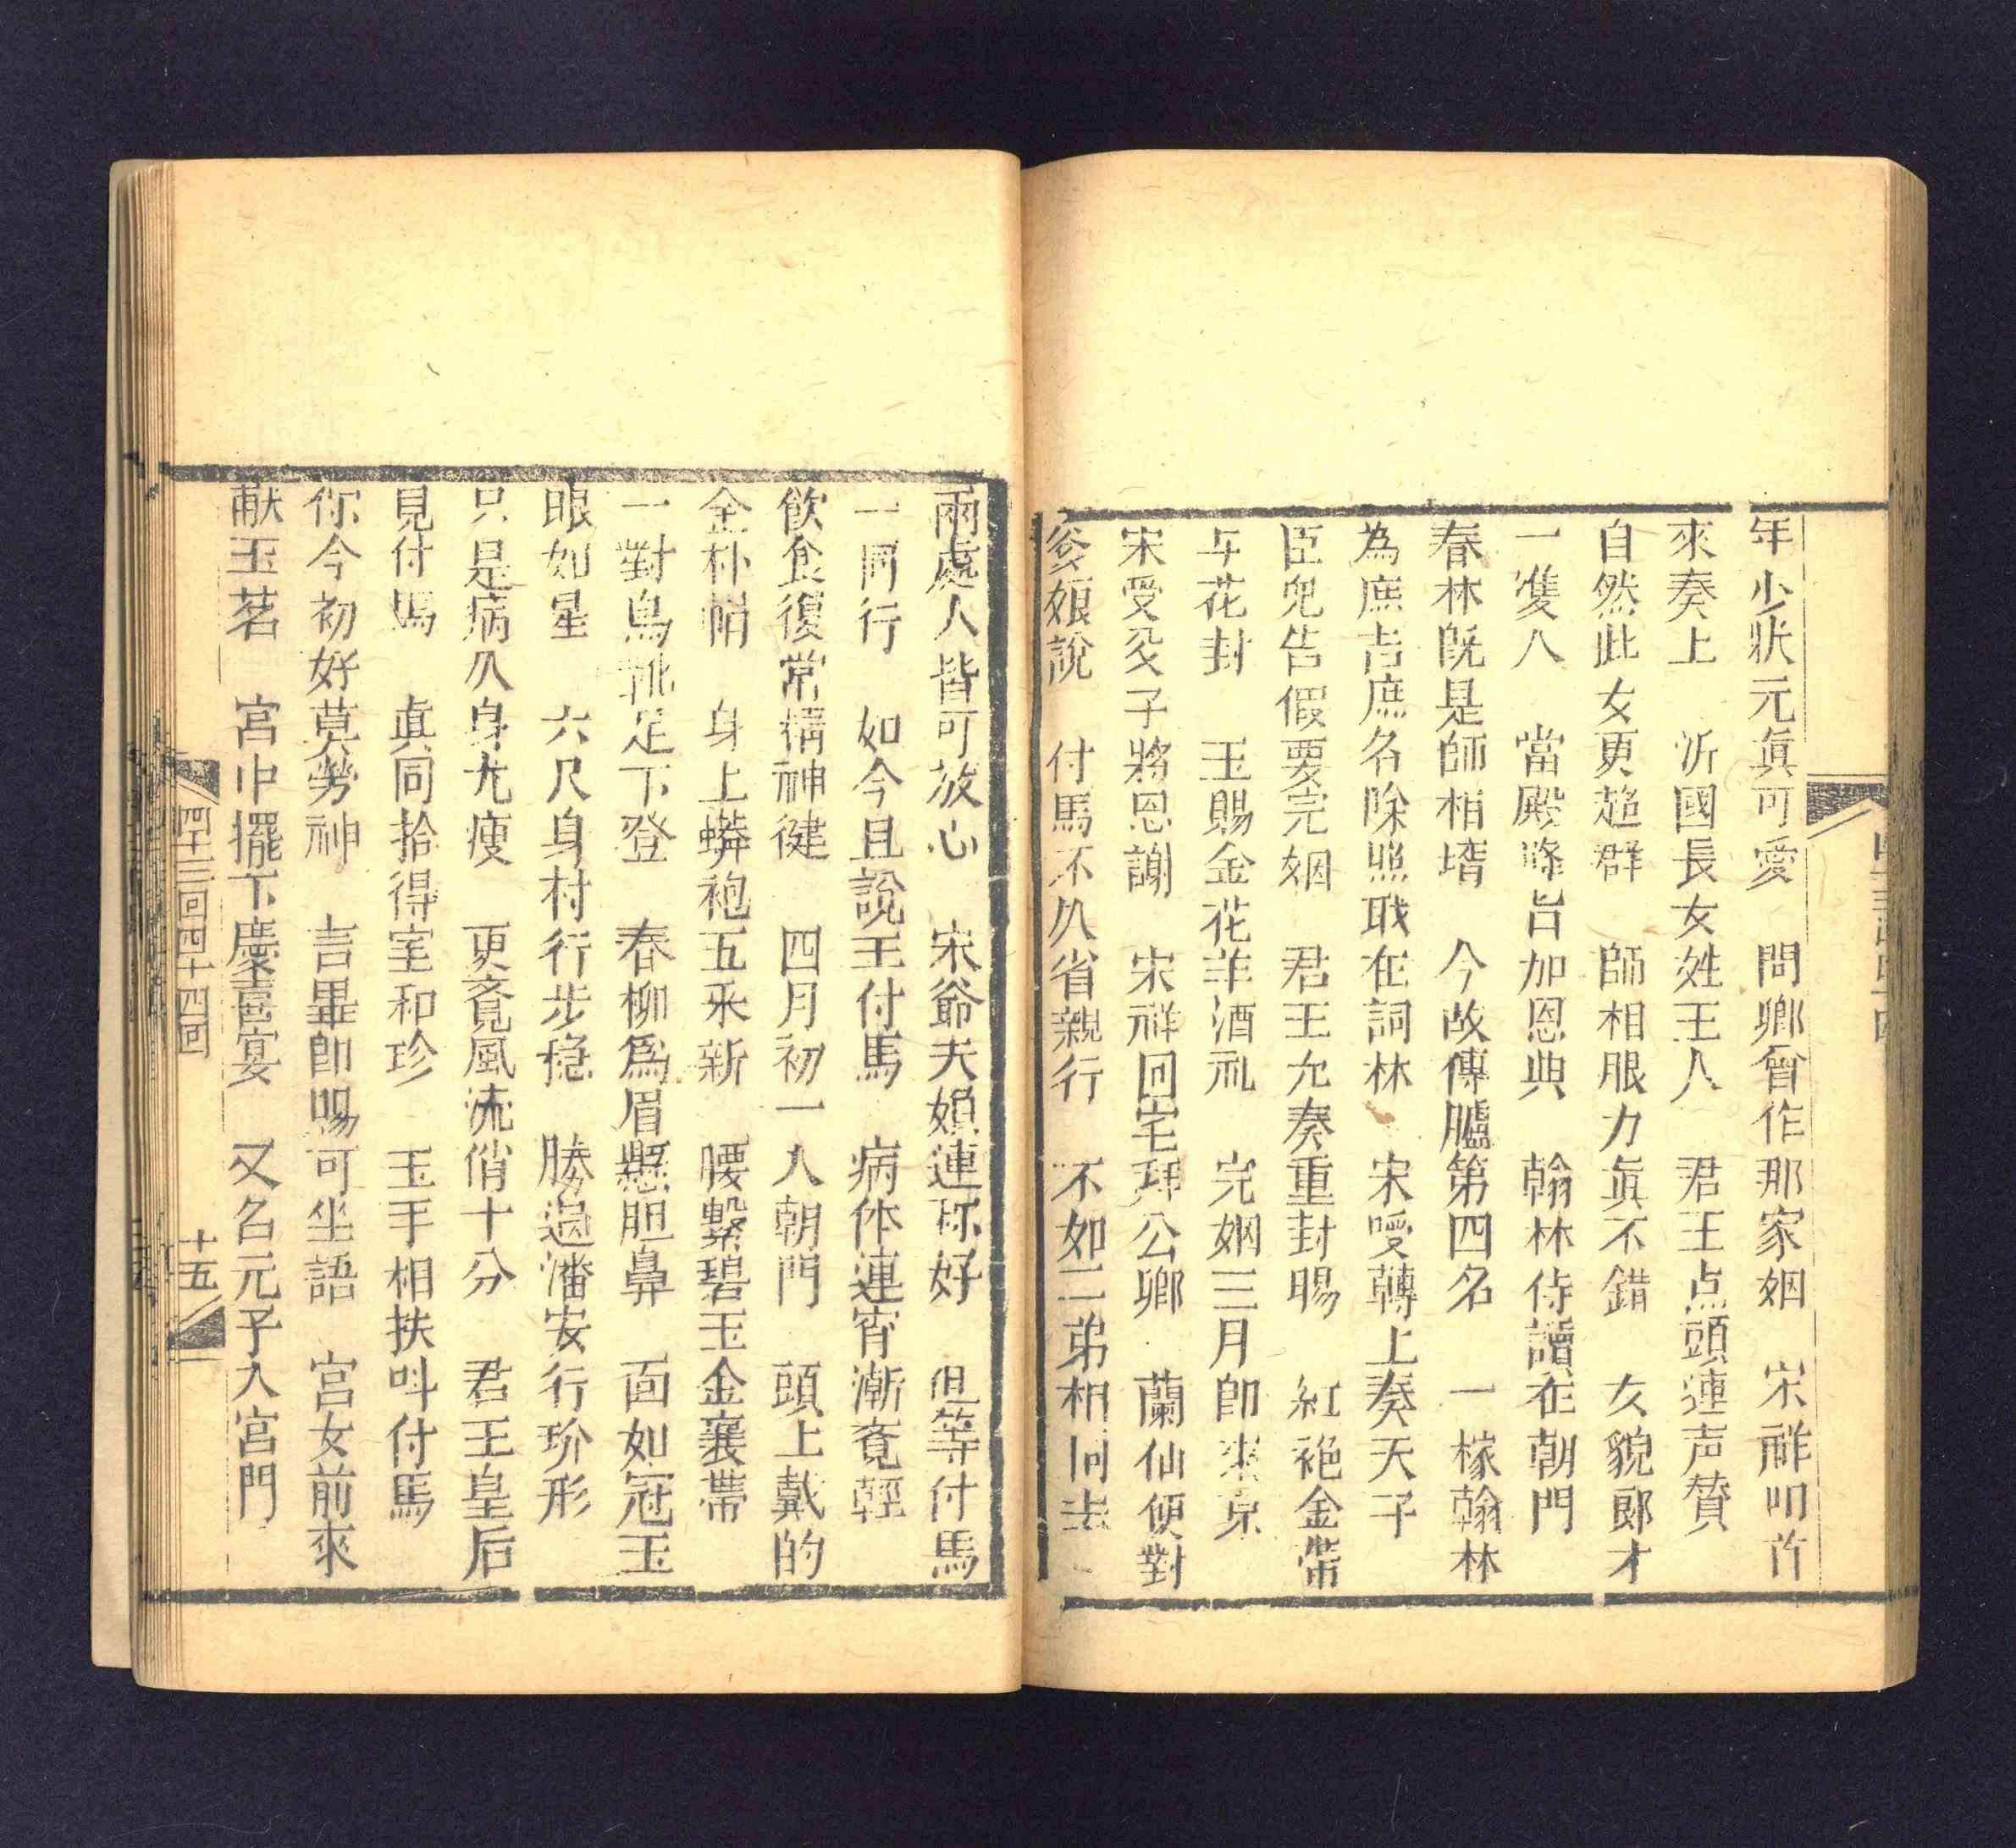 年少狀元眞可愛　問卿曾作那家姻　宋祥叩首
來奏上　沂國長女姓王人　君王点頭連声贊
自然此女更超群　師相眼力眞不錯　女貌郎才
一雙人　當殿降旨加恩典　翰林侍讀在朝門
春林旣是師相壻　今故傳臚第四名　一樣翰林
為庶吉庶名除照戝在詞林　宋嗳轉上奏天子
臣兒告假要完姻　君王允奏重封賜　紅袍金帶
与花封　玉賜金花羊酒礼　完姻三月卽來京
宋受父子將恩謝　宋祥回宅拜公卿　蘭仙便對
爹娘說　付馬不久省親行　不如二弟相同去
兩處人皆可放心　宋爺夫婦連称好　但等付馬
一同行　如今且說王付馬　病体連宵漸覓輕
飲食復常精神健　四月初一入朝門　頭上戴的
金朴帩　身上蟒袍五釆新　腰繫碧玉金襄帶
一對鳥靴足下登　春柳爲眉懸胆鼻　面如冠玉
眼如星　六尺身材行步穩　勝過潘安行玠形
只是病久身尤瘦　更覓風流俏十分　君王皇后
見付馬　眞同拾得室和珍　玉手相扶呌付馬
你今初好莫勞神　言畢卽賜可坐語　宮女前來
献玉茗　宮中擺下慶喜宴　又名元予入宮門
四十三回四十四回
十五